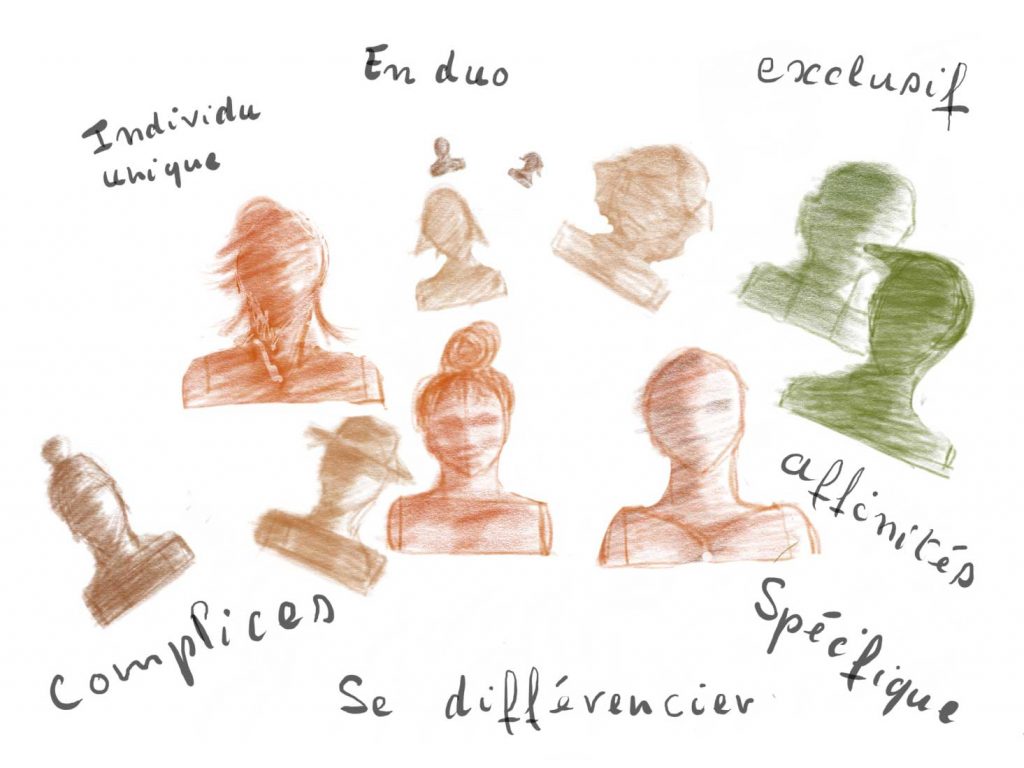 En duo
exclusif
Individu
unique
affinités
Complices
Spécifique
Se différencier